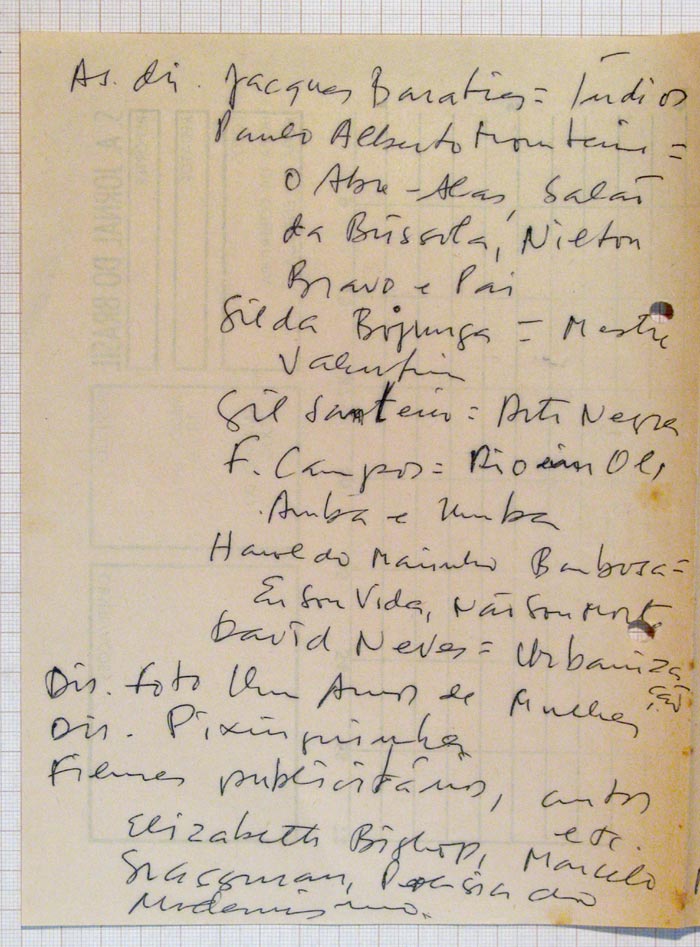 As. dir. Jacques Baratier = Índios
Paulo Alberto Monteiro =
O Abre-Alas, Salão
da Bússola, Nilton
Bravo e Pai
Gilda Bojunga = Mestre
Valentim
Gil Santeiro = Arte Negra
F. Campos = Rio
e Umba
Haroldo Marinho Barbosa =
Eu Sou Vida, Não Sou Morte
David Neves = Urbaniza
ção
Dir. foto Um Amor de Mulher
Dir. Pixinguinha
Filmes publicitários, curtos
etc.
Elizabeth Bishop, Marcelo
Grassmann, Poesia do
Modernismo.
A JORNAL DO BRASIL